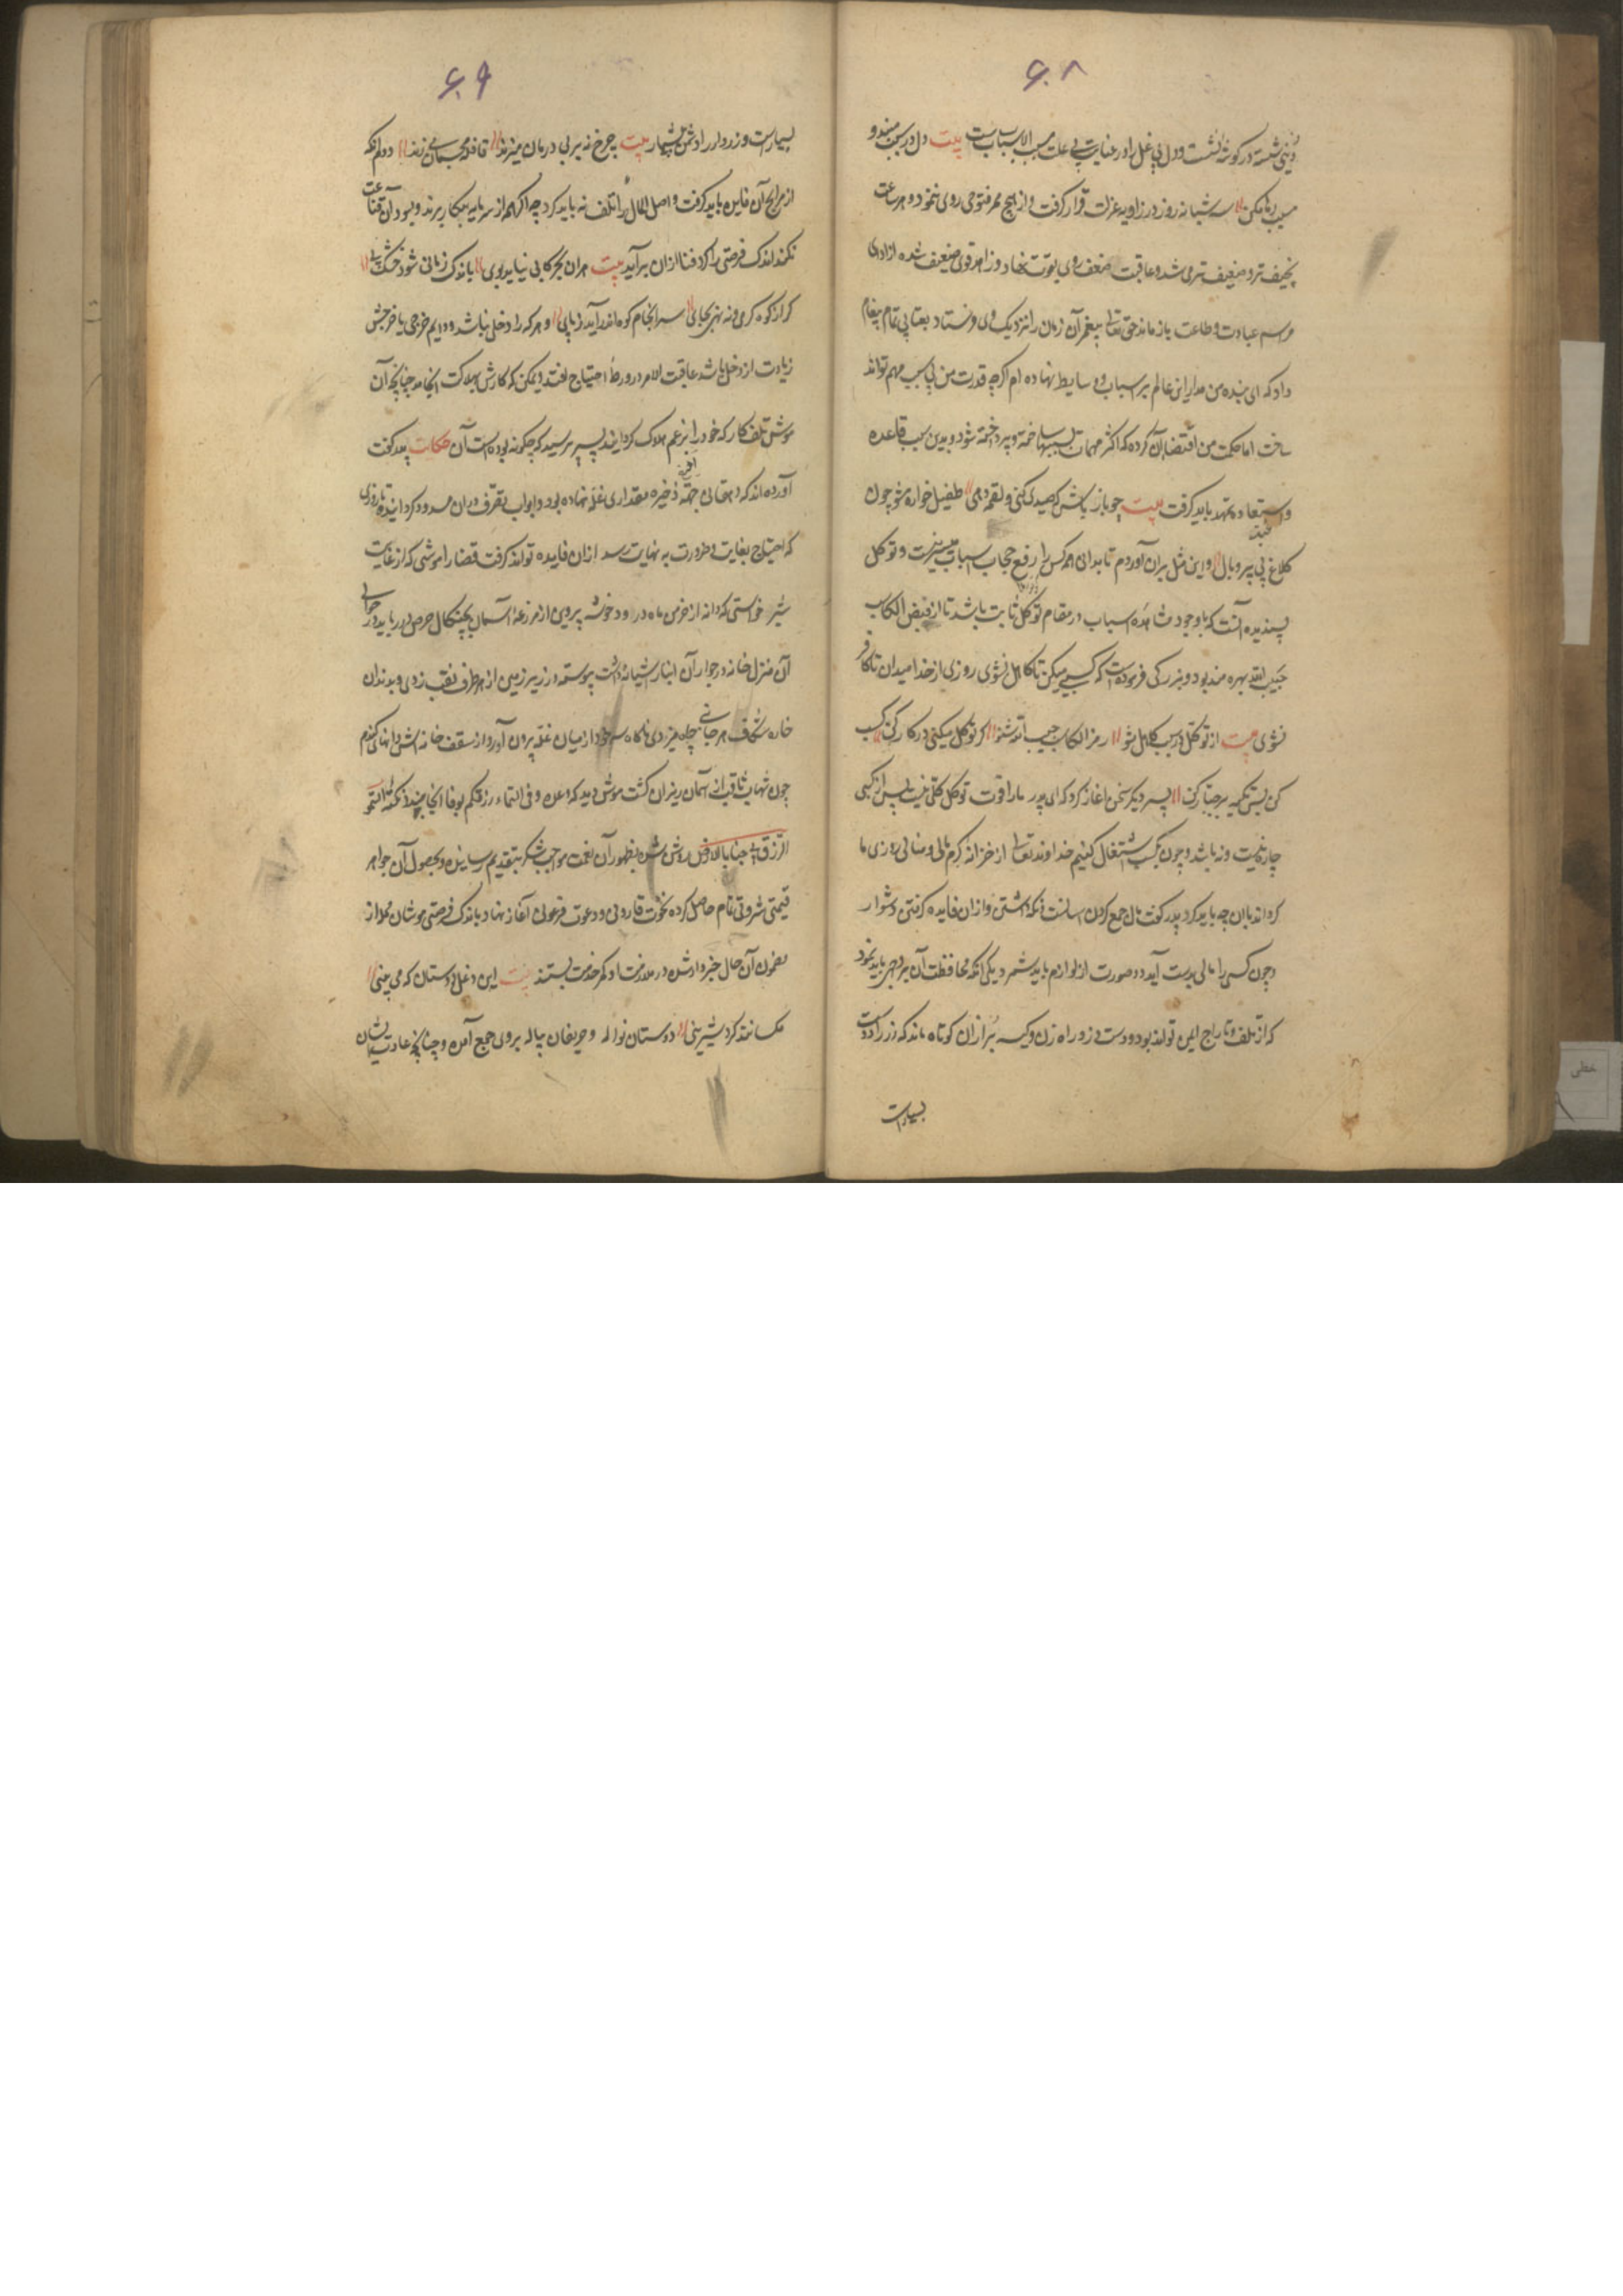 ۶۰۸
دنیی شسته در گوشه نشست و دل بی غل را در عنایت بی علت مسبب الاسباب بست بیت دل در سبب مبند و
مسبب رها مکن سه شبانه روز در زاویه عزلت قرار گرفت و از هیچ ممر فتوحی روی ننمود و هر ساعت
نحیف تر و ضعیف تر می شد و عاقبت ضعف روی بقوت نهاد و زاهد قوی ضعیف شده از ادای
مراسم عبادت و طاعت باز ماند حق تعالی پیغمبر آن زمان را نزدیک وی فرستاد بعتابی تمام پیغام
داد که ای بنده من مدار این عالم بر اسباب و وسایط نهاده ام اگرچه قدرت من بی سبب مهم تواند
ساخت اما حکمت من اقتضا آن کرده که اکثر مهمات بسببها ساخته و پرداخته شود و بدین سبب قاعده
و استفاده تمهید باید گرفت بیت چو باز باش که صیدی کنی و لقمه دهی طفیل خواره مشو چون
کلاغ بی پر و بال و این مثل بران آوردم تا بدانی همه کس را رفع حجاب اسباب میسر نیست و توکل
پسندیده آنست که باوجود مشاهده اسباب در مقام توکل ثابت باشد تا از فیض الکاسب
حبیب الله بهره مند بود و بزرگی فرموده است که کسبی میکن تا کاهل نشوی و روزی از خدا میدان تا کافر
نشوی بیت از توکل در سبب کاهل مشو رمز الکاسب حبیب الله شنو گر توکل میکنی در کار کن کسب
کن پس تکیه بر جبار کن پسر دیگر سخن اغاز کرد که ای پدر ما را قوت توکل کلی نیست پس از کسبی
چاره نیست و نه باشد و چون بکسب اشتغال کنیم خداوند تعالی از خزانه کرم مالی و منالی روزی ما
گرداند با ان چه باید کرد پدر گفت مال جمع کردن اسانست و نگهداشتن و ازان فایده گرفتن دشوار
و چون کسی را مالی بدست آید دو صورت از لوازم باید شمرد یکی آنکه محافظت آن بر وجهی باید نمود
که از تلف و تاراج ایمن تواند بود و دست دزد و راه زن و کیسه بر ازان کوتاه ماند که زر را دوست
بسیارست
۶۰۹
بسیارست و زردار را دشمن بیشمار بیت چرخ نه بر بی درمان میزند قافله محتشمان میزند دوم آنکه
از مرابح آن فایده باید گرفت و اصل المال را تلف نه باید کرد چه اگر همه از سرمایه بکار برند و بسود آن قناعت
نکنند اندک فرصتی را گرد فنا ازان برآید بیت هر ان بحر کابی نیاید بوی باندک زمانی شود خشک پی
گر از کوه گیری و نه نهی بجای سرانجام کوه اندر آید ز پای و هر که را دخلی نباشد و دایم خرجی یا خرجش
زیادت از دخل باشد عاقبت الامر در ورطهٔ احتیاج افتد و یمکن که کارش بهلاکت انجامد چنانچه آن
موش تلف کار که خود را از غم هلاک گردانید پسر پرسید که چگونه بوده است آن حکایت پدر گفت
آورده اند که دهقانی جهته ذخیره مقداری غله نهاده بود و ابواب تصرف دران مسدود گردانیده تا روزی
که احتیاج بغایت و ضرورت به نهایت رسد ازان فایده تواند گرفت قضا را موشی که از غایت
شره خواستی که دانه از خرمن ماه در اود و خوشه پروین از مزرعهٔ آسمان بچنگال حرص در رباید در حوالی
آن منزل خانه و در جوار آن انبار آشیانه داشت پیوسته در زیر زمین از هر طرف نقب زدی و بدندان
خاره شکاف هر جانبی چاه میزدی ناگاه سر خود از میان غله بیرون آورد و از سقف خانه اش دانهای گندم
چون شهاب ثاقب از آسمان ریزان گشت موش دید که وعده و فی السماء رزقکم بوفا انجامید و نکته التمسوا
الرزق فی خبایا الارض روشن شد بظهور آن نعمت مواجب شکر بتقدیم رسانیده و بحصول آن جواهر
قیمتی ثروتی تمام حاصل کرده نخوت قارونی و دعوت فرعونی آغاز نهاد باندک فرصتی موشان محله از
مضمون آن حال خبردار شده در ملازمت او کمر خدمت بستند بیت این دغل دوستان که می بینی
مگسانند گرد شیرینی دوستان نواله و حریفان پیاله بر وی جمع آمده و چنانچه عادت ایشان